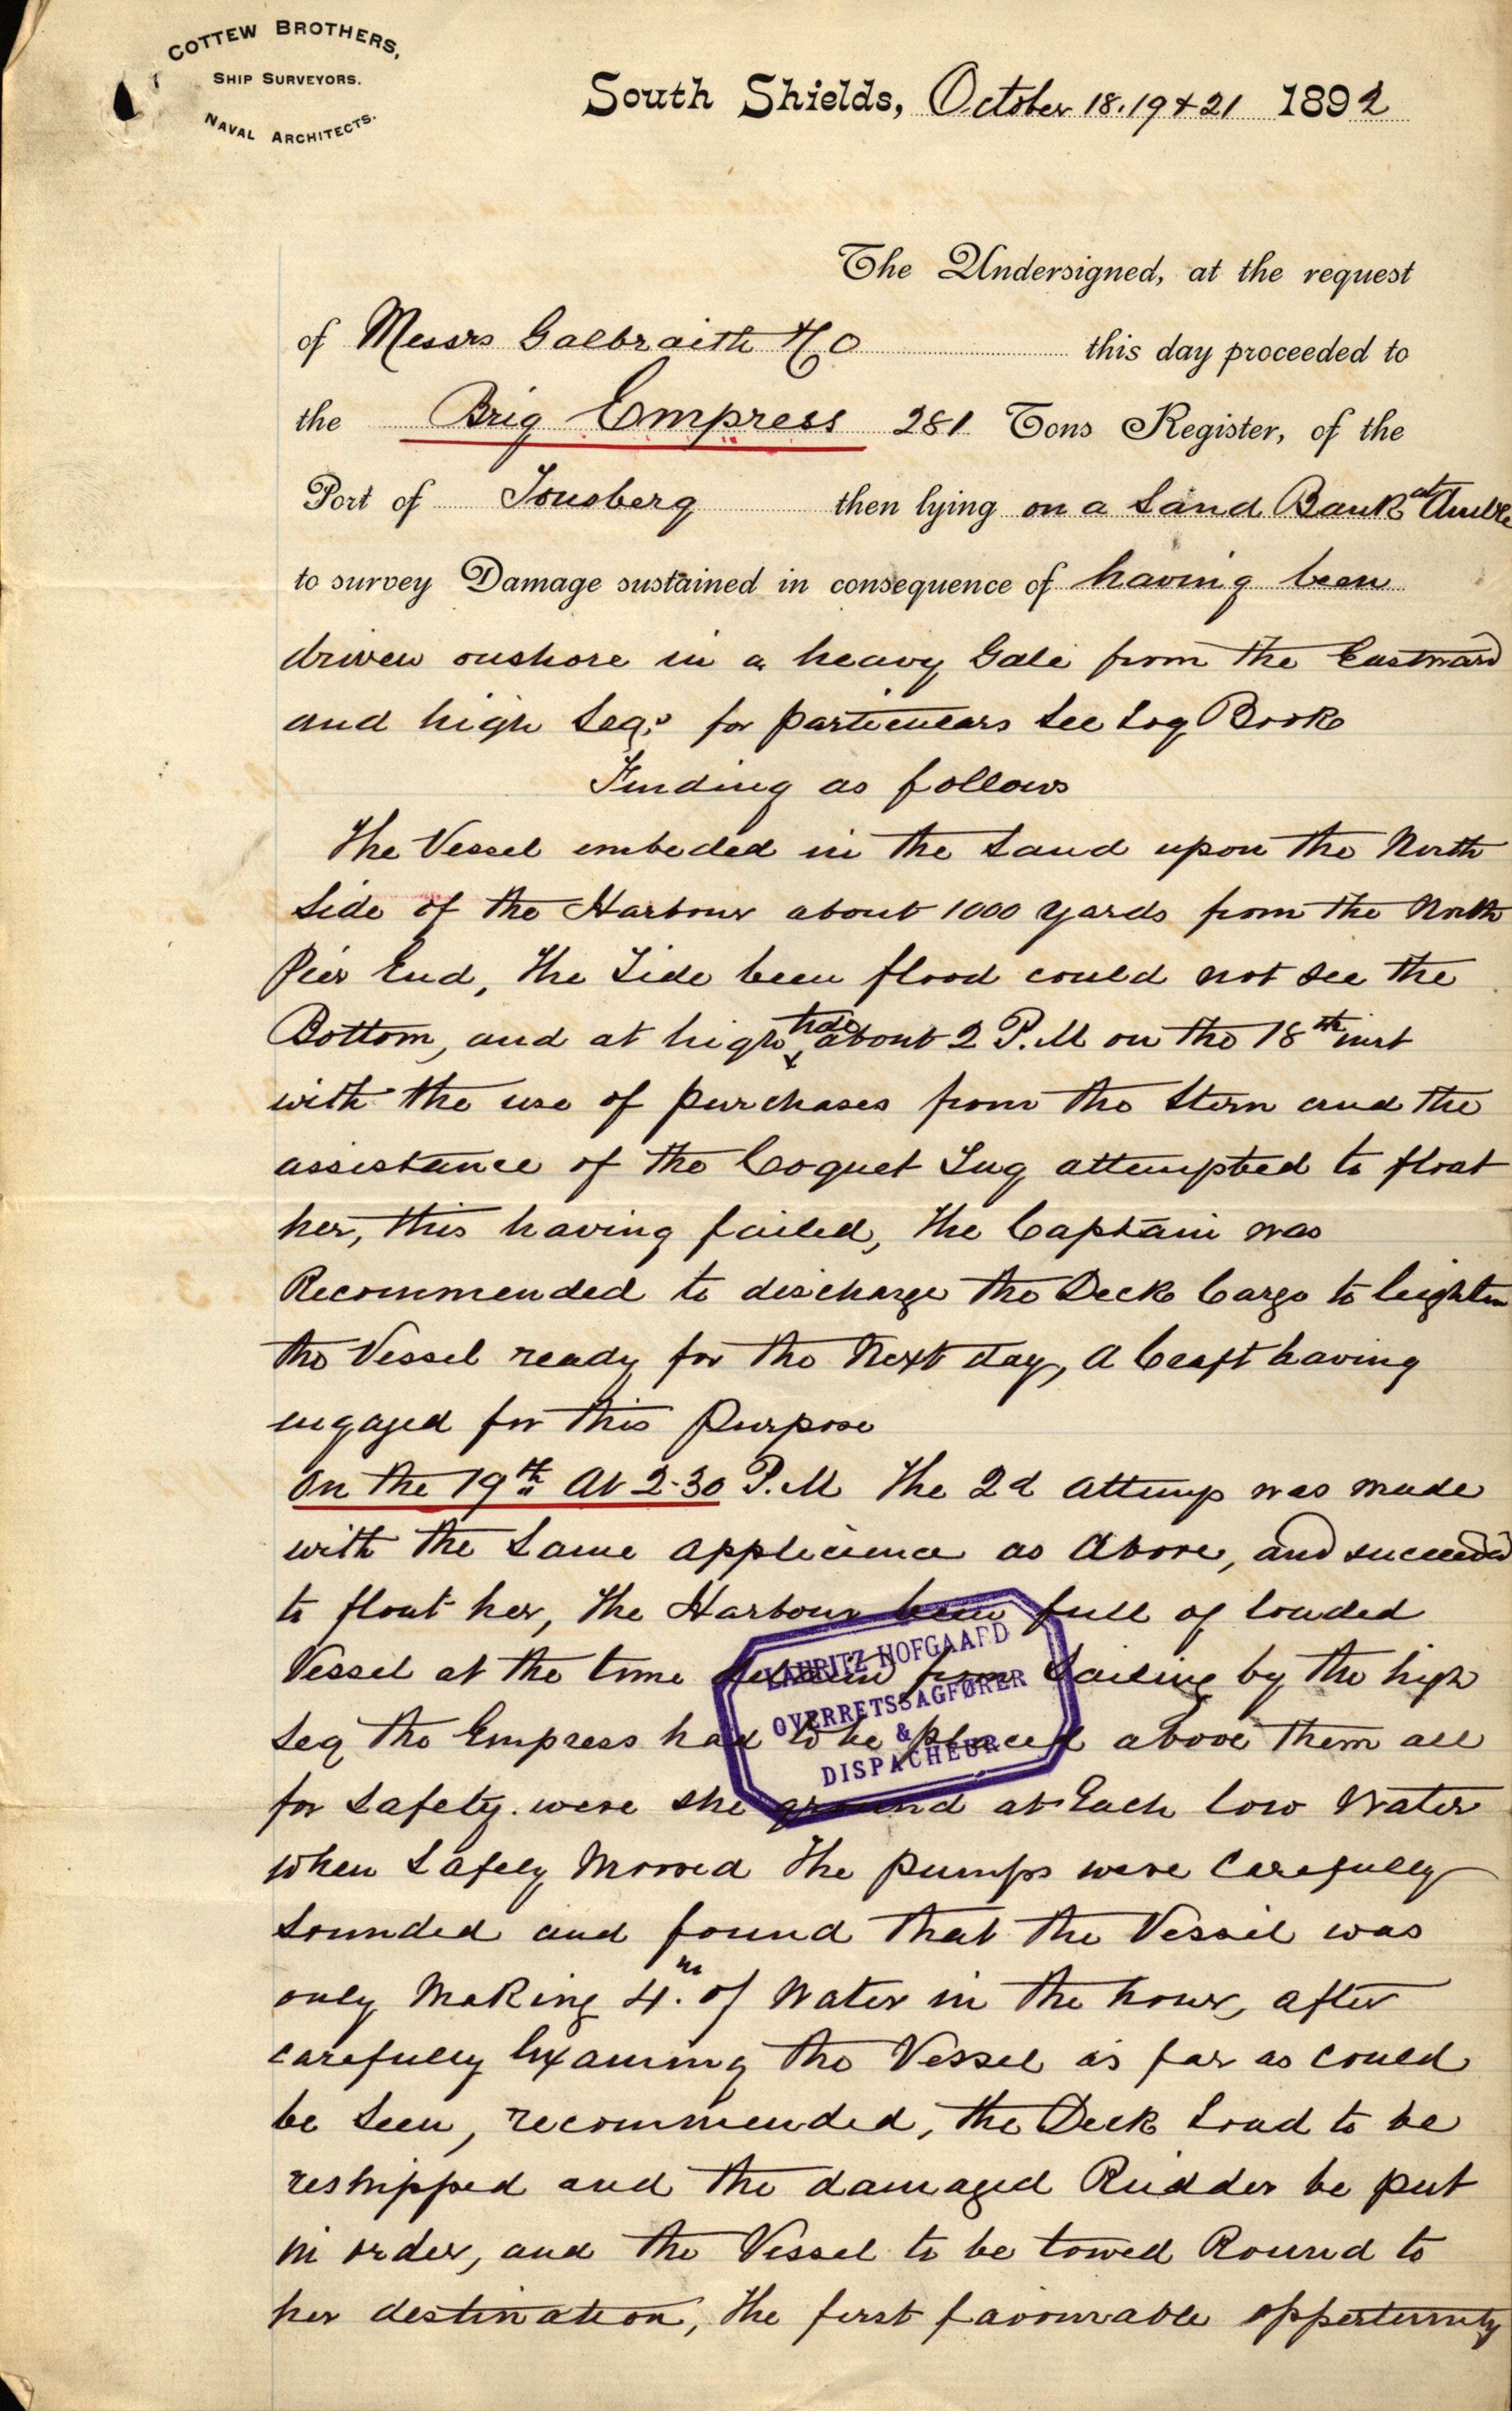 COTTEW BROTHERS,
SHIP SURVEYORS.
NAVAL ARCHITECTS.
South Shields, October 18. 19 & 21 1892
The Undersigned, at the request
of Messrs Galbraith & Co this day proceeded to
the Brig Empress 281 Tons Register, of the
Port of Tonsberg then lying on a Sand Bank at Amble
to survey Damage sustained in consequence of having been
driven onshore in a heavy Gale from the Eastward
and high Sea, for particulars See Log Book
Finding as follows
The Vessel embeded in the Sand upon the North
Side of the Harbour about 1000 yards from the North
Pier End, The Tide been flood could not see the
Bottom, and at high tide about 2 P.M on the 18th inst
with the use of purchases from the Stern and the
assistance of the Coquet Tug attempted to float
her, this having failed, The Captain was
Recommended to discharge the Deck Cargo to leighten
the Vessel ready for the Next day, A Craft having
engaged for this Purpose
On the 19th At 2-30 P.M The 2d Attemp was made
with the Same applicience as Above, and succeeded
to float her, The Harbour been full of loaded
Vessel at the time from Sailing by the high
Sea the Empress had to be placed above them all
for Safety. were she ground at Each low Water
when Safely Moored The pumps were Carefully
Sounded and found that the Vessel was
only Making 4 in of Water in the hour, after
carefully Examing the Vessel as far as could
be Seen, recommended, the Deck Load to be
reshipped and the damaged Rudder be put
in order, and the Vessel to be towed Round to
her destination, The first favourable oppertunity
LAURITZ HOFGAARD
OVERRETSSAGFØRER
&
DISPACHEUR